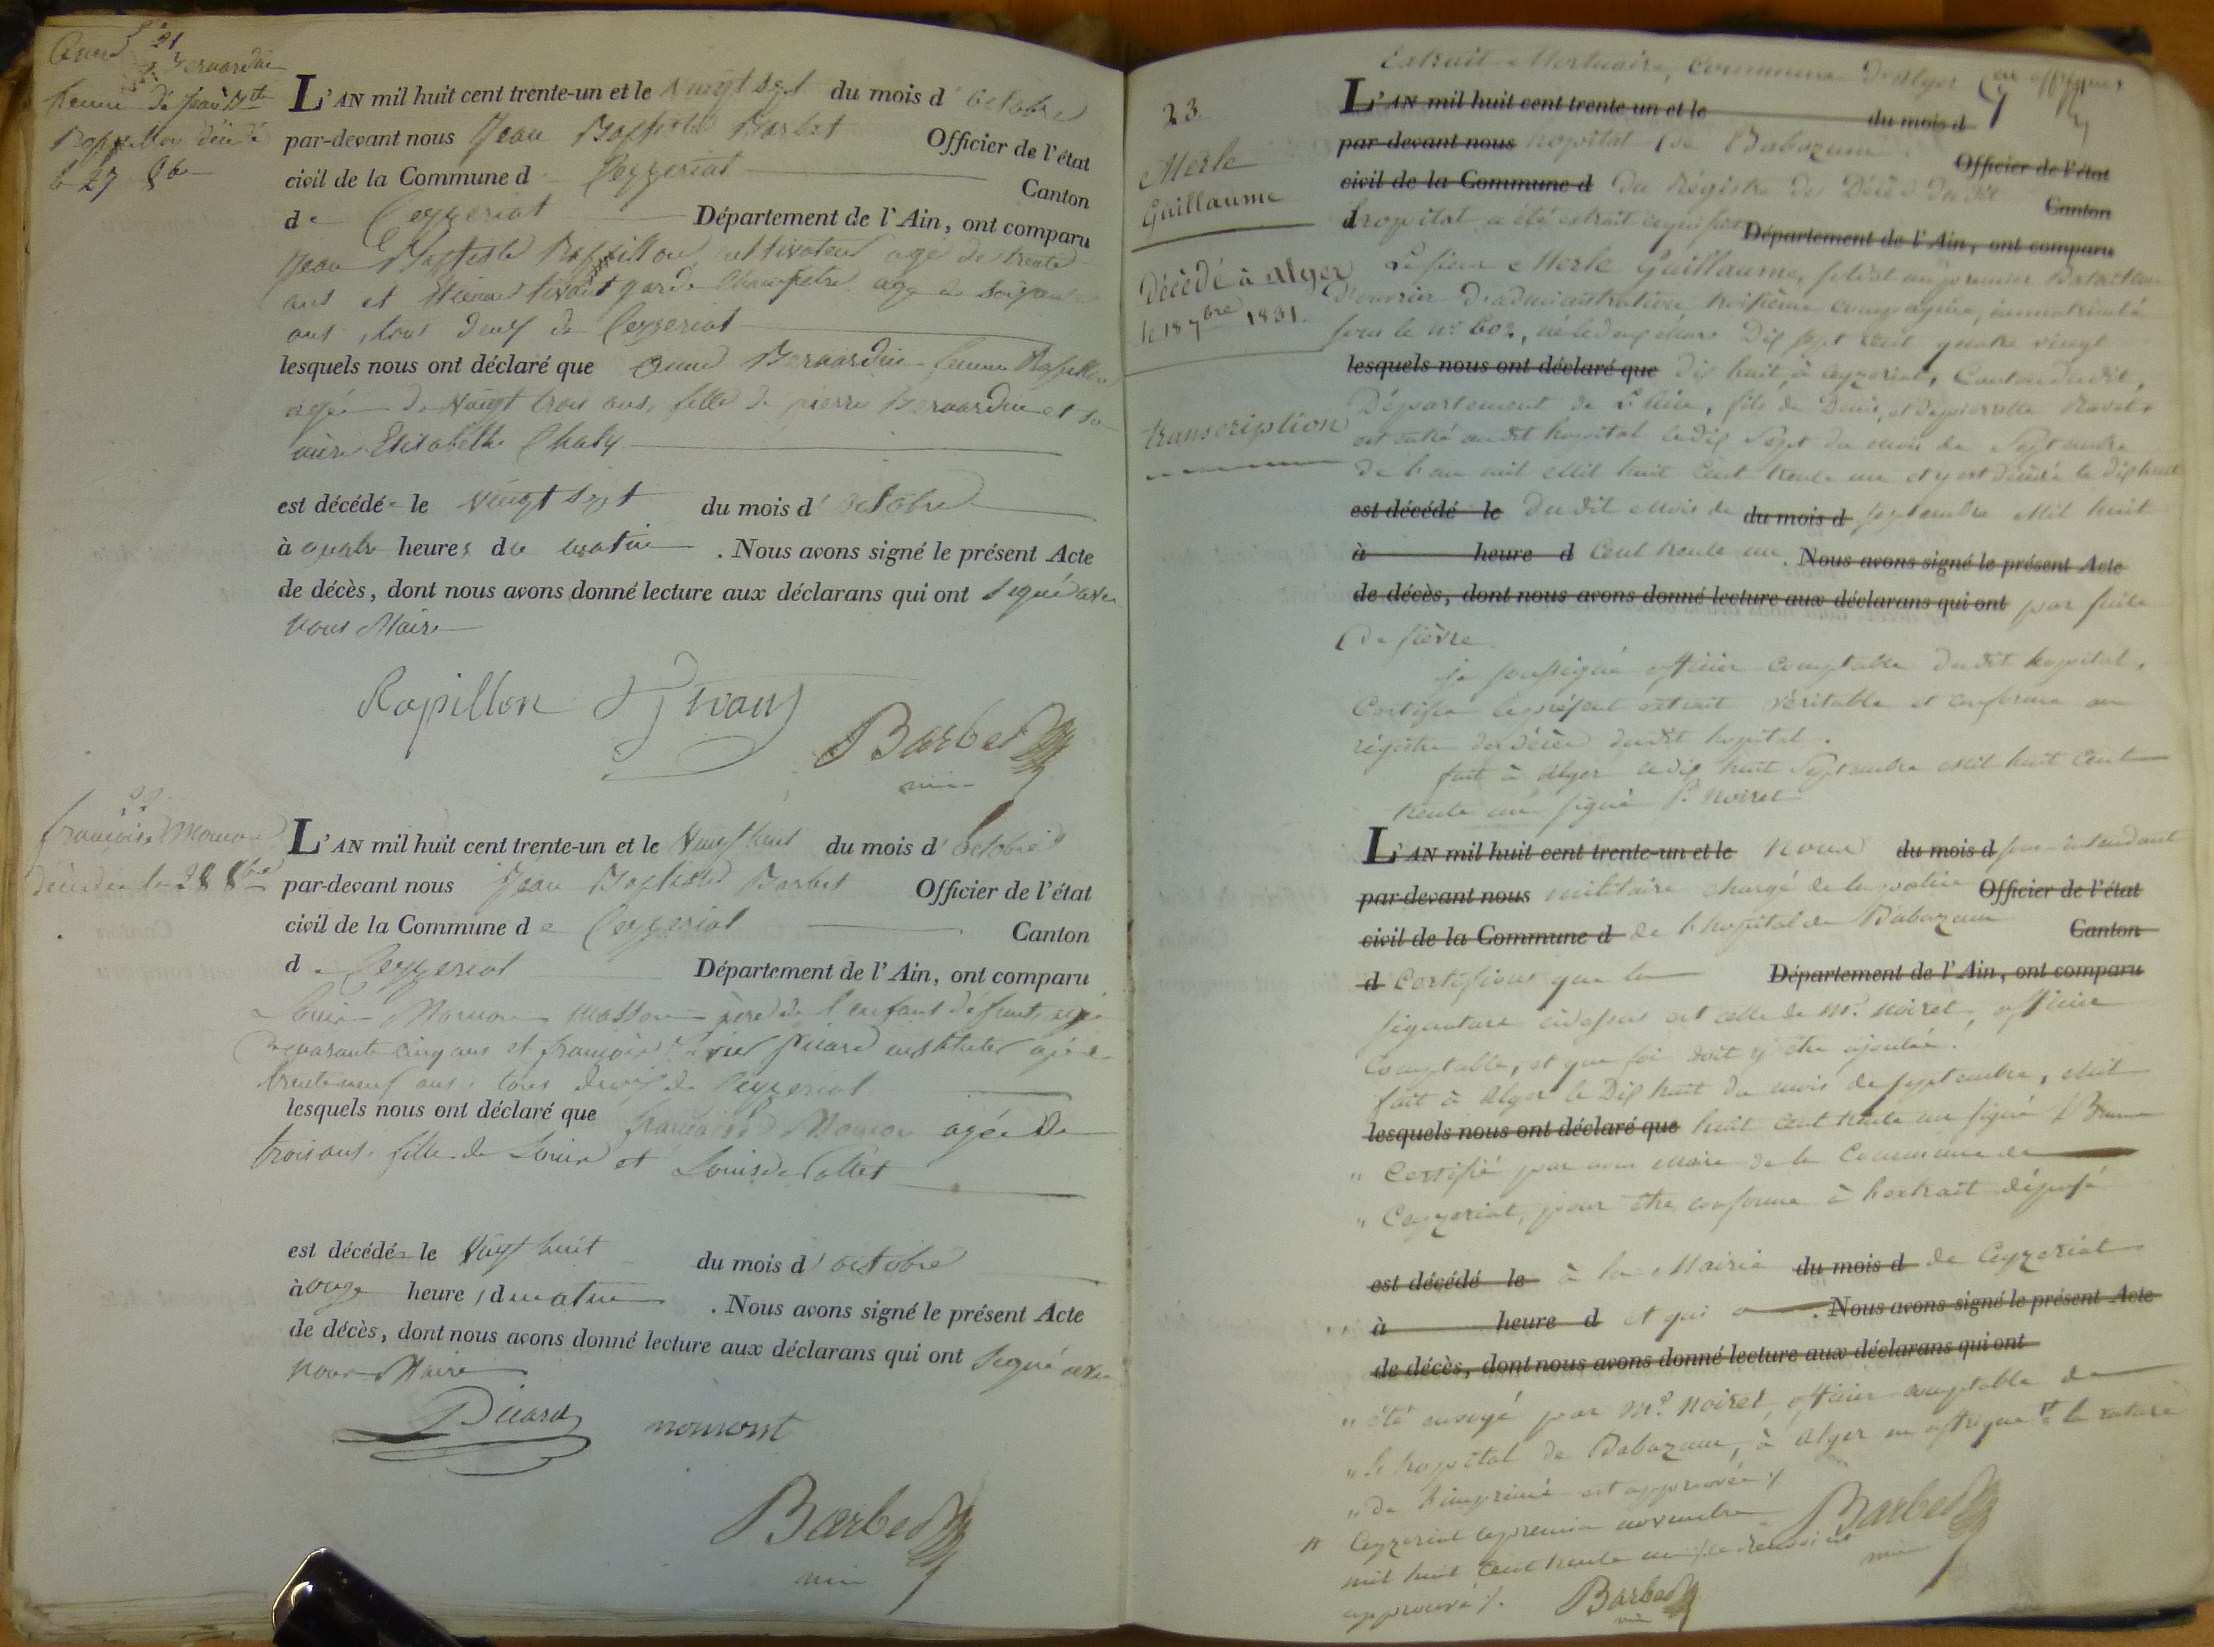 21
Bernardine
femme de jean Bte
Rapillon décédé
le 27 8b
L'AN mil huit cent trente-un et le vingt sept du mois d'octobre
par-devant nous Jean Baptiste Barbet Officier de l'état
civil de la Commune d Ceyzeriat Canton
de Ceyzeriat Département de l'Ain, ont comparu
Jean Baptiste Rapillon cultivateur agé de trente
ans et Etienne garde champêtre agé de
ans, tous deux de Ceyzeriat
lesquels nous ont déclaré que Bernardine femme Rapillon
agée de vingt trois ans, fille de pierre Bernardine et sa
mère Elisabeth Chaty
est décédé le vingt sept du mois d'octobre
à quatre heures du matin. Nous avons signé le présent Acte
de décès, dont nous avons donné lecture aux déclarans qui ont signé avec
nous Maire
Rapillon
Barbet
22
françoise
décédée le 28 8bre
L'AN mil huit cent trente-un et le vingt huit du mois d'octobre
par-devant nous Jean Baptiste Barbet Officier de l'état
civil de la Commune de Ceyzeriat Canton
de Ceyzeriat Département de l'Ain, ont comparu
Louis masson père de l'enfant défunt, agé
quarante cinq ans et françois picard instituteur agé de
trente neuf ans, tous deux de Ceyzeriat
lesquels nous ont déclaré que françoise agée de
trois ans, fille de Louis et Louise
est décédé le vingt huit du mois d'octobre
à onze heures du matin. Nous avons signé le présent Acte
de décès, dont nous avons donné lecture aux déclarans qui ont signé avec
nous Maire
Picard
Barbet
Extrait Mortuaire, Commune d'Alger en affrique
23
Merle
Guillaume
Décédé à Alger
le 18 7bre 1831.
transcription
L'AN mil huit cent trente-un et le du mois d
par-devant nous hopital de Babazoun Officier de l'état
civil de la Commune d du Régistre des Décès du dit Canton
d hopital a été extrait ce qui suit Département de l'Ain, ont comparu
Le sieur Merle Guillaume, soldat au premier Bataillon
d'ouvrier d'administration, troisième compagnie, immatriculé
sous le no 602, né le deux mars Dix sept cent quatre vingt
lesquels nous ont déclaré que dix huit, à ceyzeriat, Canton du dit,
Département de L'Ain, fils de Denis et de pierrette Ravet
est entré au dit hopital le dix Sept du mois de Septembre
de l'an mil huit Cent trente un et y est décédé le dix huit
est décédé le du dit mois de du mois d septembre mil huit
à heure d Cent trente un. Nous avons signé le présent Acte
de décès, dont nous avons donné lecture aux déclarans qui ont par suite
de fièvre
je soussigné officier comptable du dit hopital,
Certifie le présent extrait véritable et conforme au
régistre des décès du dit hopital.
fait à Alger le dix huit Septembre mil huit Cent
trente un signé P. Noiret
L'AN mil huit cent trente-un et le nous du mois d sous-intendant
par-devant nous militaire chargé de la police Officier de l'état
civil de la Commune d de l'hopital de Babazoun Canton
d Certifions que la Département de l'Ain, ont comparu
signature ci dessus est celle de Mr Noiret, officier
Comptable, et que foi doit y être ajoutée.
fait à Alger le Dix huit du mois de septembre, mil
lesquels nous ont déclaré que huit cent trente un signé
" Certifié par nous maire de la Commune de
" Ceyzeriat, pour être conforme à l'extrait déposé
est décédé le à la Mairie du mois d de Ceyzeriat
à heure d et qui a. Nous avons signé le présent Acte
de décès, dont nous avons donné lecture aux déclarans qui ont
" été envoyé par Mr Noiret, officier comptable de
" l'hopital de Babazoun, à Alger en affrique la rature
" de l'imprimé est approuvée
Ceyzeriat le premier novembre
mil huit Cent trente un
approuvé
Barbet
Barbet